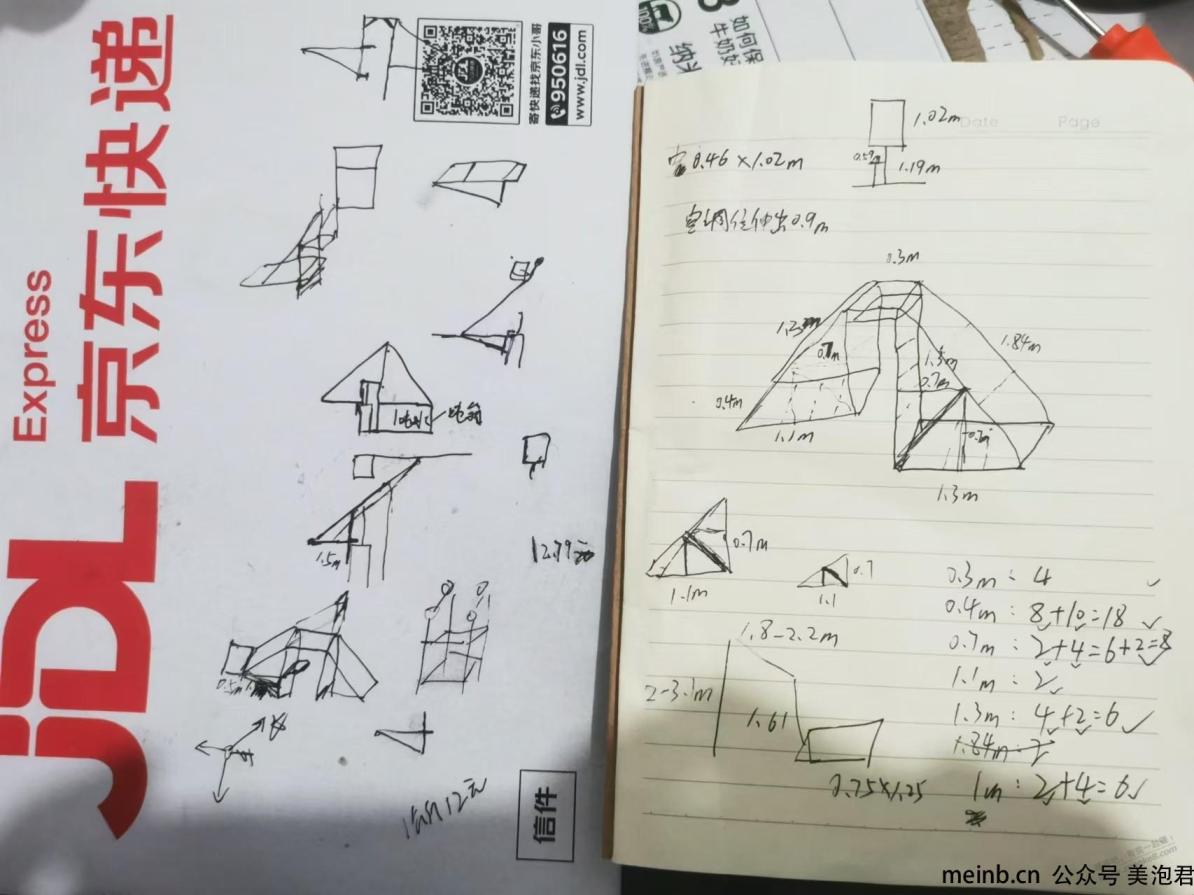 JDL 京东快递
Express
寄快递找京东小哥
950616
www.jdl.com
1.5m
12.99元
0.5m
信件
如何保
牛奶
纳米
Date
Page
1.02m
0.46×1.02m
0.59m
1.19m
空调位伸出0.9m
0.3m
1.3m
1.84m
0.7m
1.3m
0.7m
0.4m
1.1m
1.3m
0.7m
1.1m
0.7
1.1
0.3m: 4
0.4m: 8+10=18
0.7m: 2+4=6+2=8
1.1m: 2
1.3m: 4+2=6
1.84m: 2
1m: 2+4=6
1.8-2.2m
2-3.1m
1.61
0.75×1.25
meinb.cn 公众号 美泡君